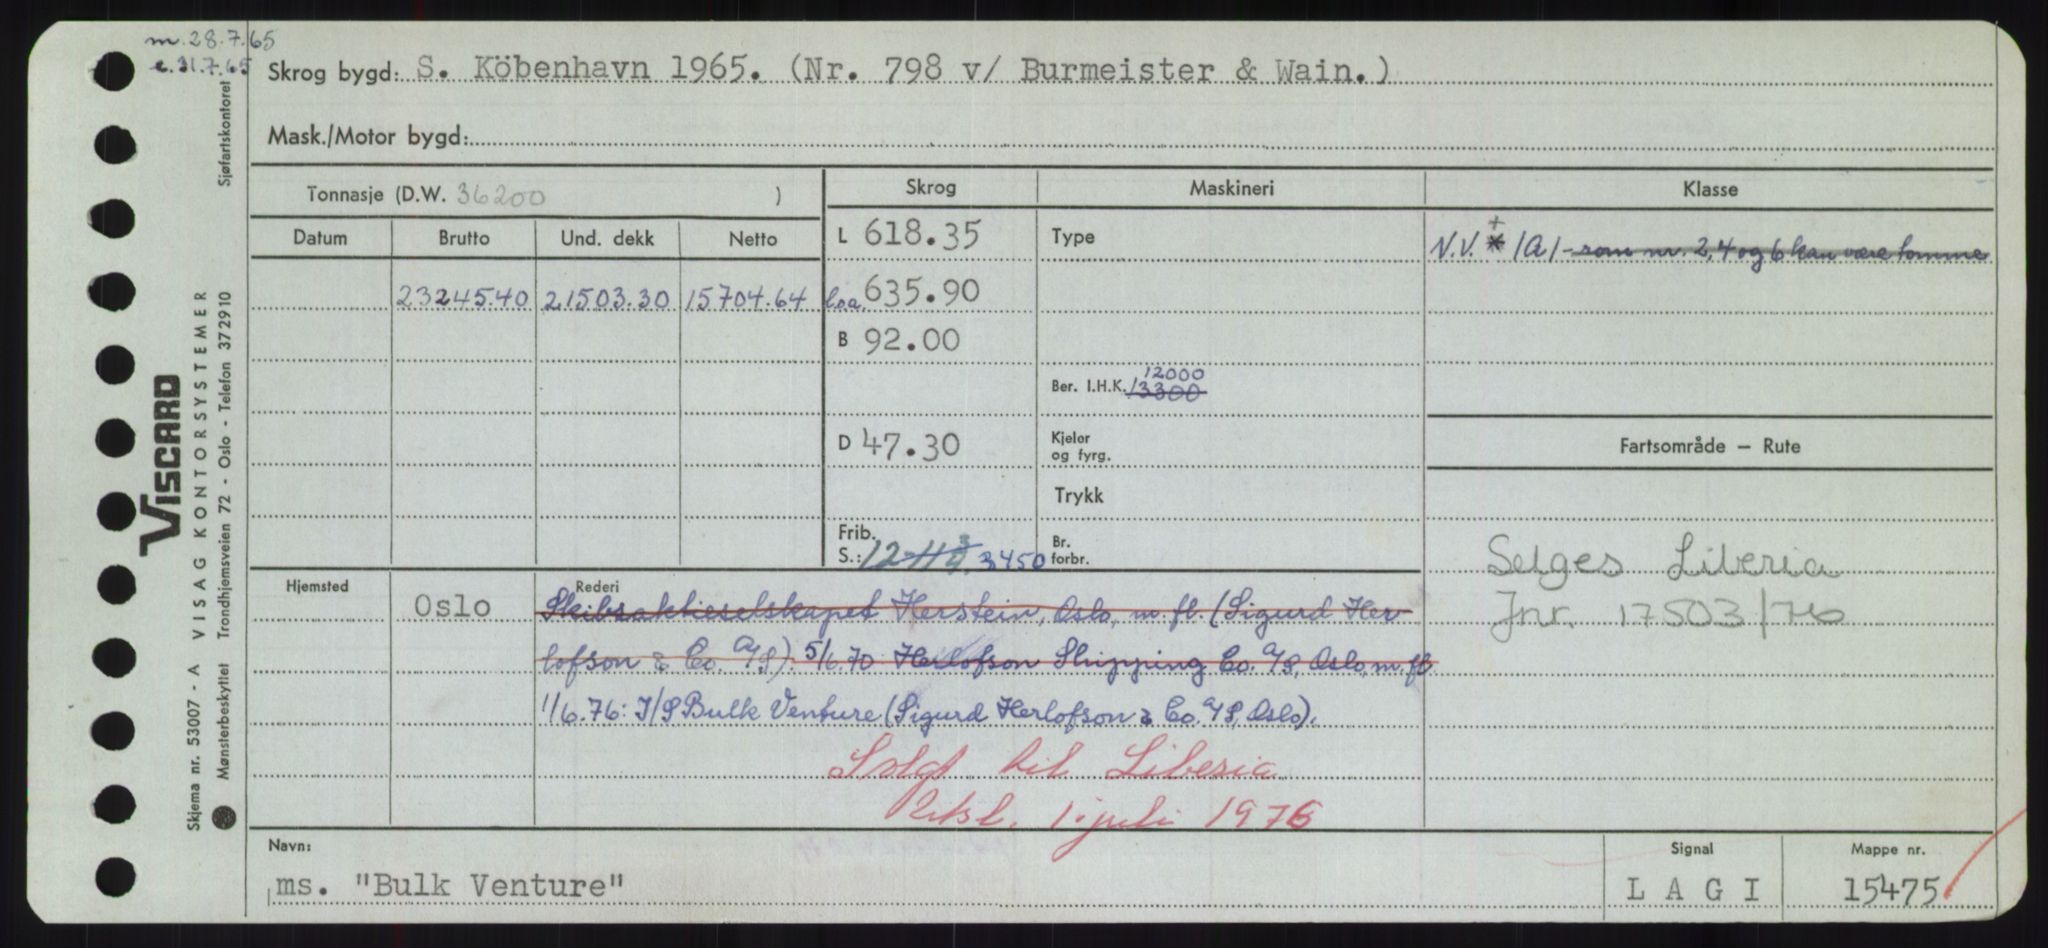 m. 28.7.65
e. 31.7.65
Skrog bygd: S. Köbenhavn 1965. (Nr. 798 v/ Burmeister & Wain.)
Mask./Motor bygd:
Tonnasje (D.W. 36200 )
Skrog
Maskineri
Klasse
Datum
Brutto
Und. dekk
Netto
L 618.35
Type
V.V. + * /A/ - rom nr. 2, 4 og 6 kan være tomme
23245.40
21503.30
15704.64
loa. 635.90
B 92.00
12000
Ber. I.H.K. 13300
D 47.30
Kjeler
og fyrg.
Fartsområde — Rute
Trykk
Frib.
S.: 3450
Br.
forbr.
Selges Liberia
Jnr. 17503/76
Hjemsted
Rederi
Oslo
Skibsaktieselskapet Herstein, Oslo, m. fl. (Sigurd Her-
lofson & Co. A/S). 5/6.70: Herlofson Shipping Co. A/S, Oslo, m. fl.
11/6.76: I/S Bulk Venture (Sigurd Herlofson & Co. A/S, Oslo).
Solgt til Liberia
1. juli 1976
Navn:
ms. "Bulk Venture"
Signal
LAGI
Mappe nr.
15475
Skjema nr. 53007 - A VISAG KONTORSYSTEMER
Mønsterbeskyttet Trondhjemsveien 72 - Oslo - Telefon 372910
Sjøfartskontoret
VISCARD